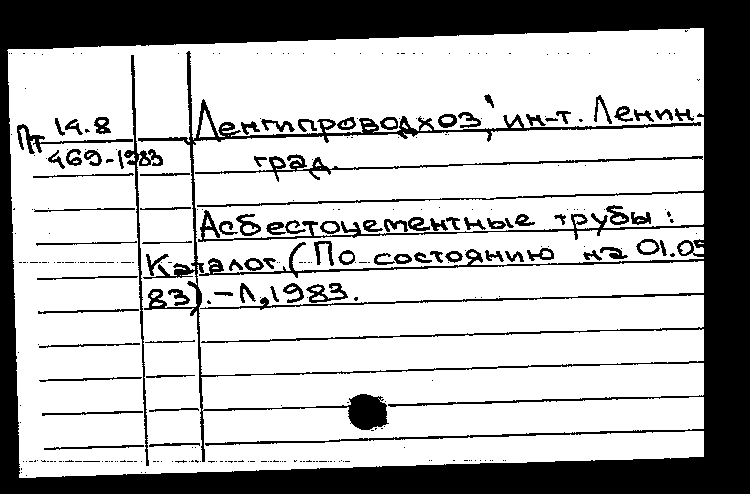 Пт 14.8
469-1983
Ленгипроводхоз, ин-т. Ленин-
град.
Асбестоцементные трубы:
Каталог. (По состоянию на 01.05
83). - Л, 1983.